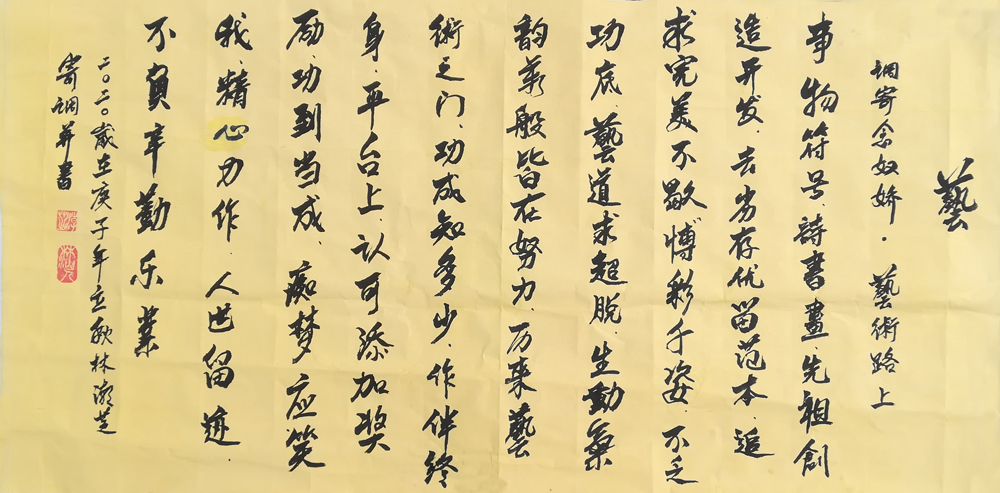 藝
调寄念奴娇·藝術路上
事物符号.詩書畫.先祖創
造开发.去劣存优留范本.追
求完美不歇.博彩千姿.不乏
功底.藝道求超脱.生動氣
韵萬般皆在努力.历来藝
術之门.功成知多少.作伴终
身.平台上.认可添加奖
励.功到当成.痴梦应笑
我.精心力作.人世留迹
不負辛勤乐業
二〇二〇歲在庚子年立秋林
寄调并書